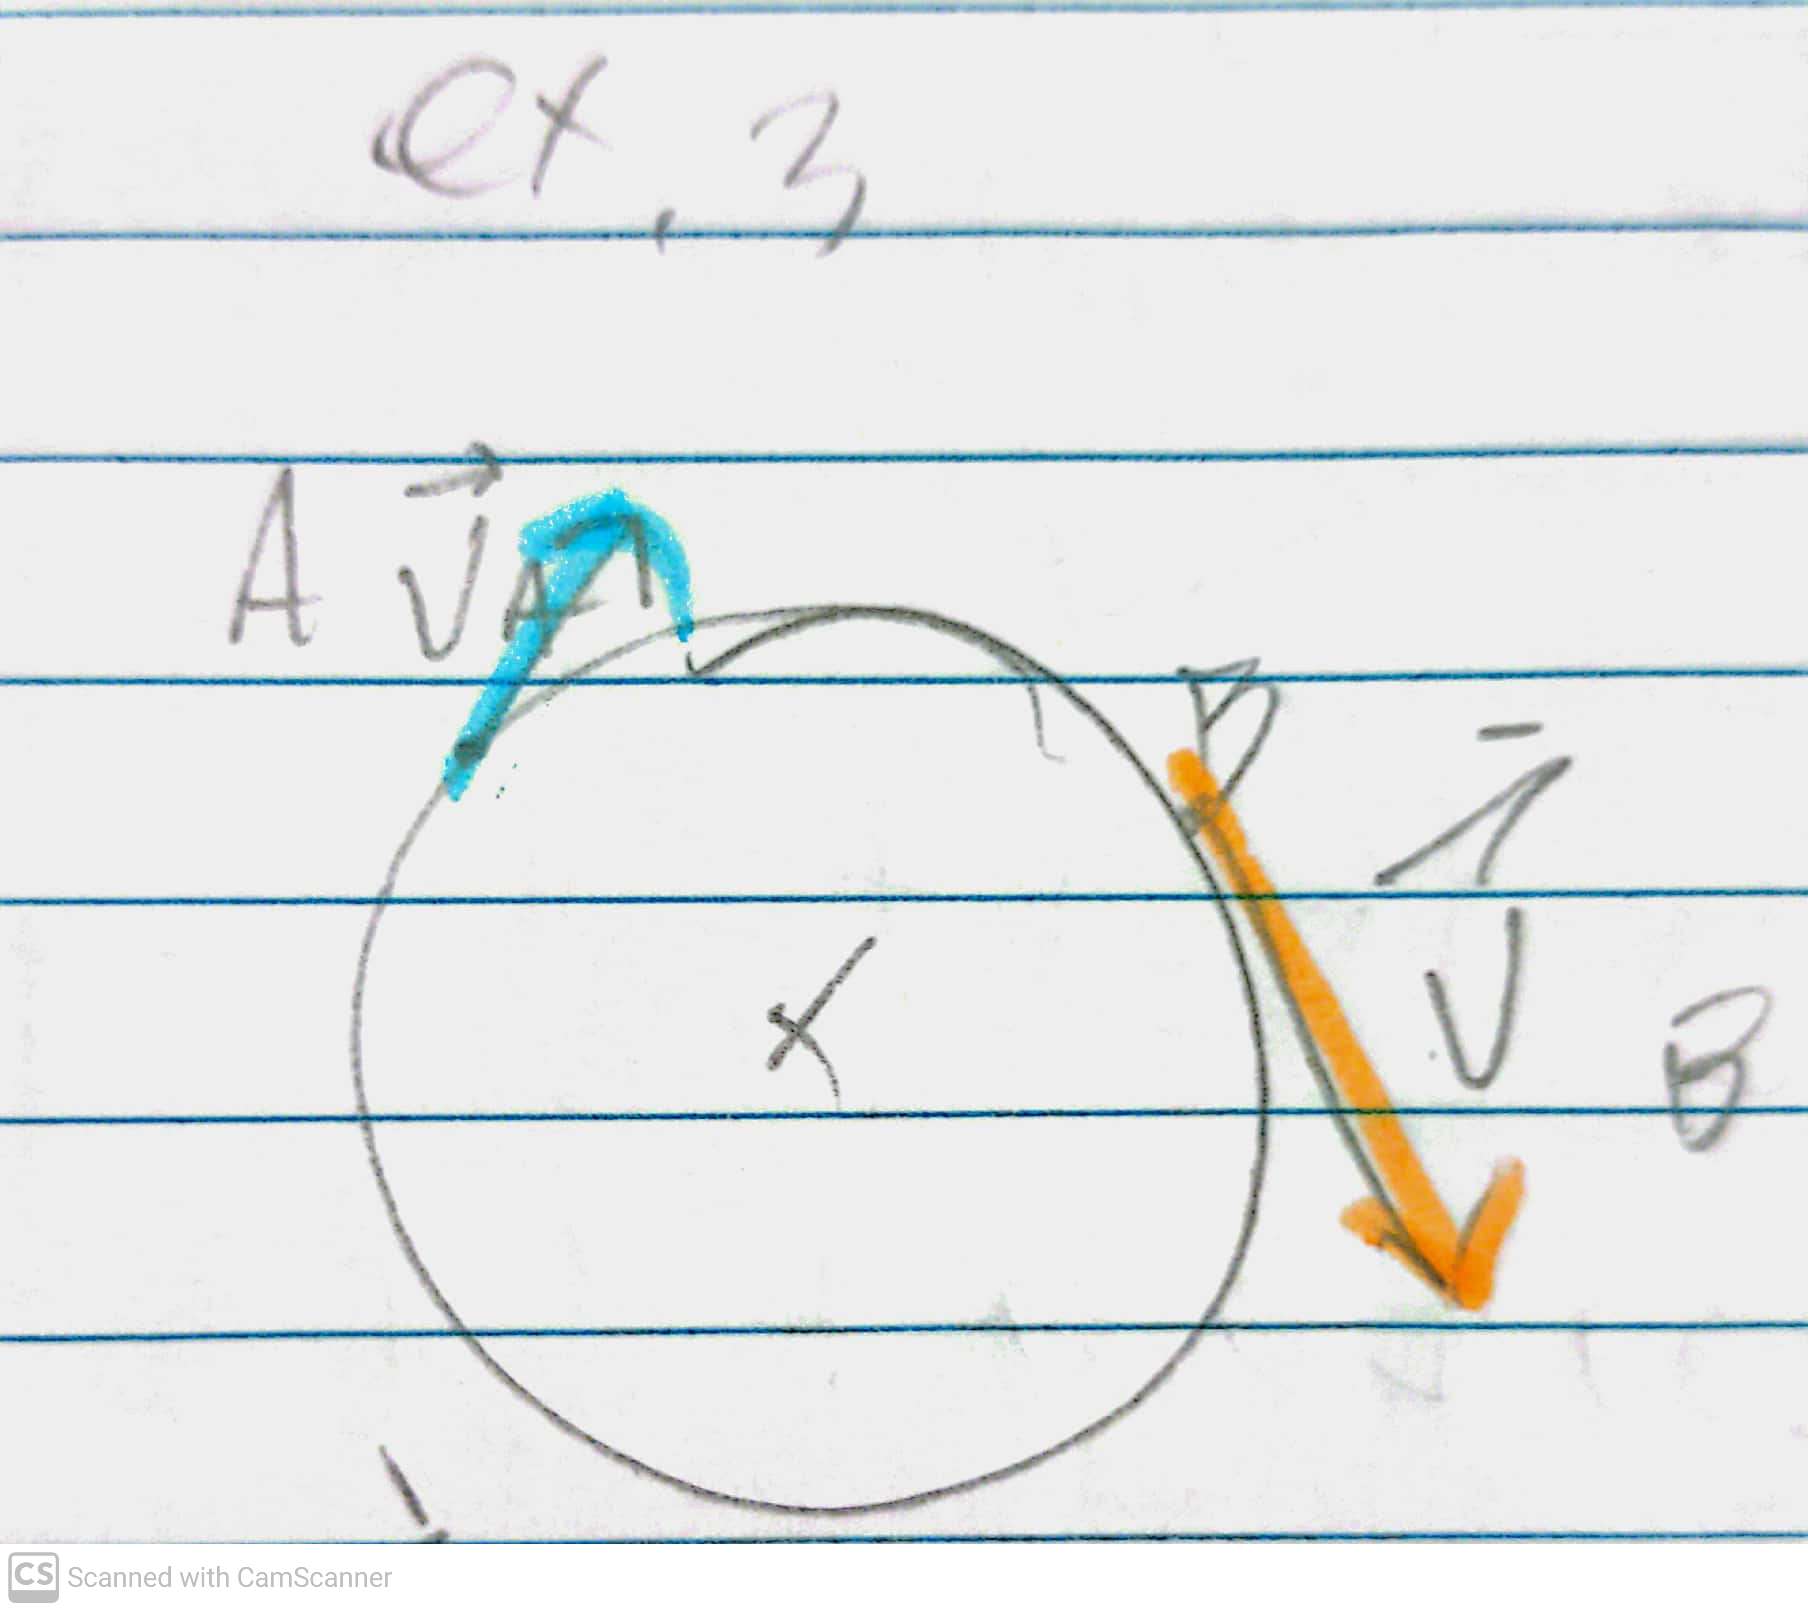 ex. 3
A V⃗A
B
V⃗ B
CS Scanned with CamScanner